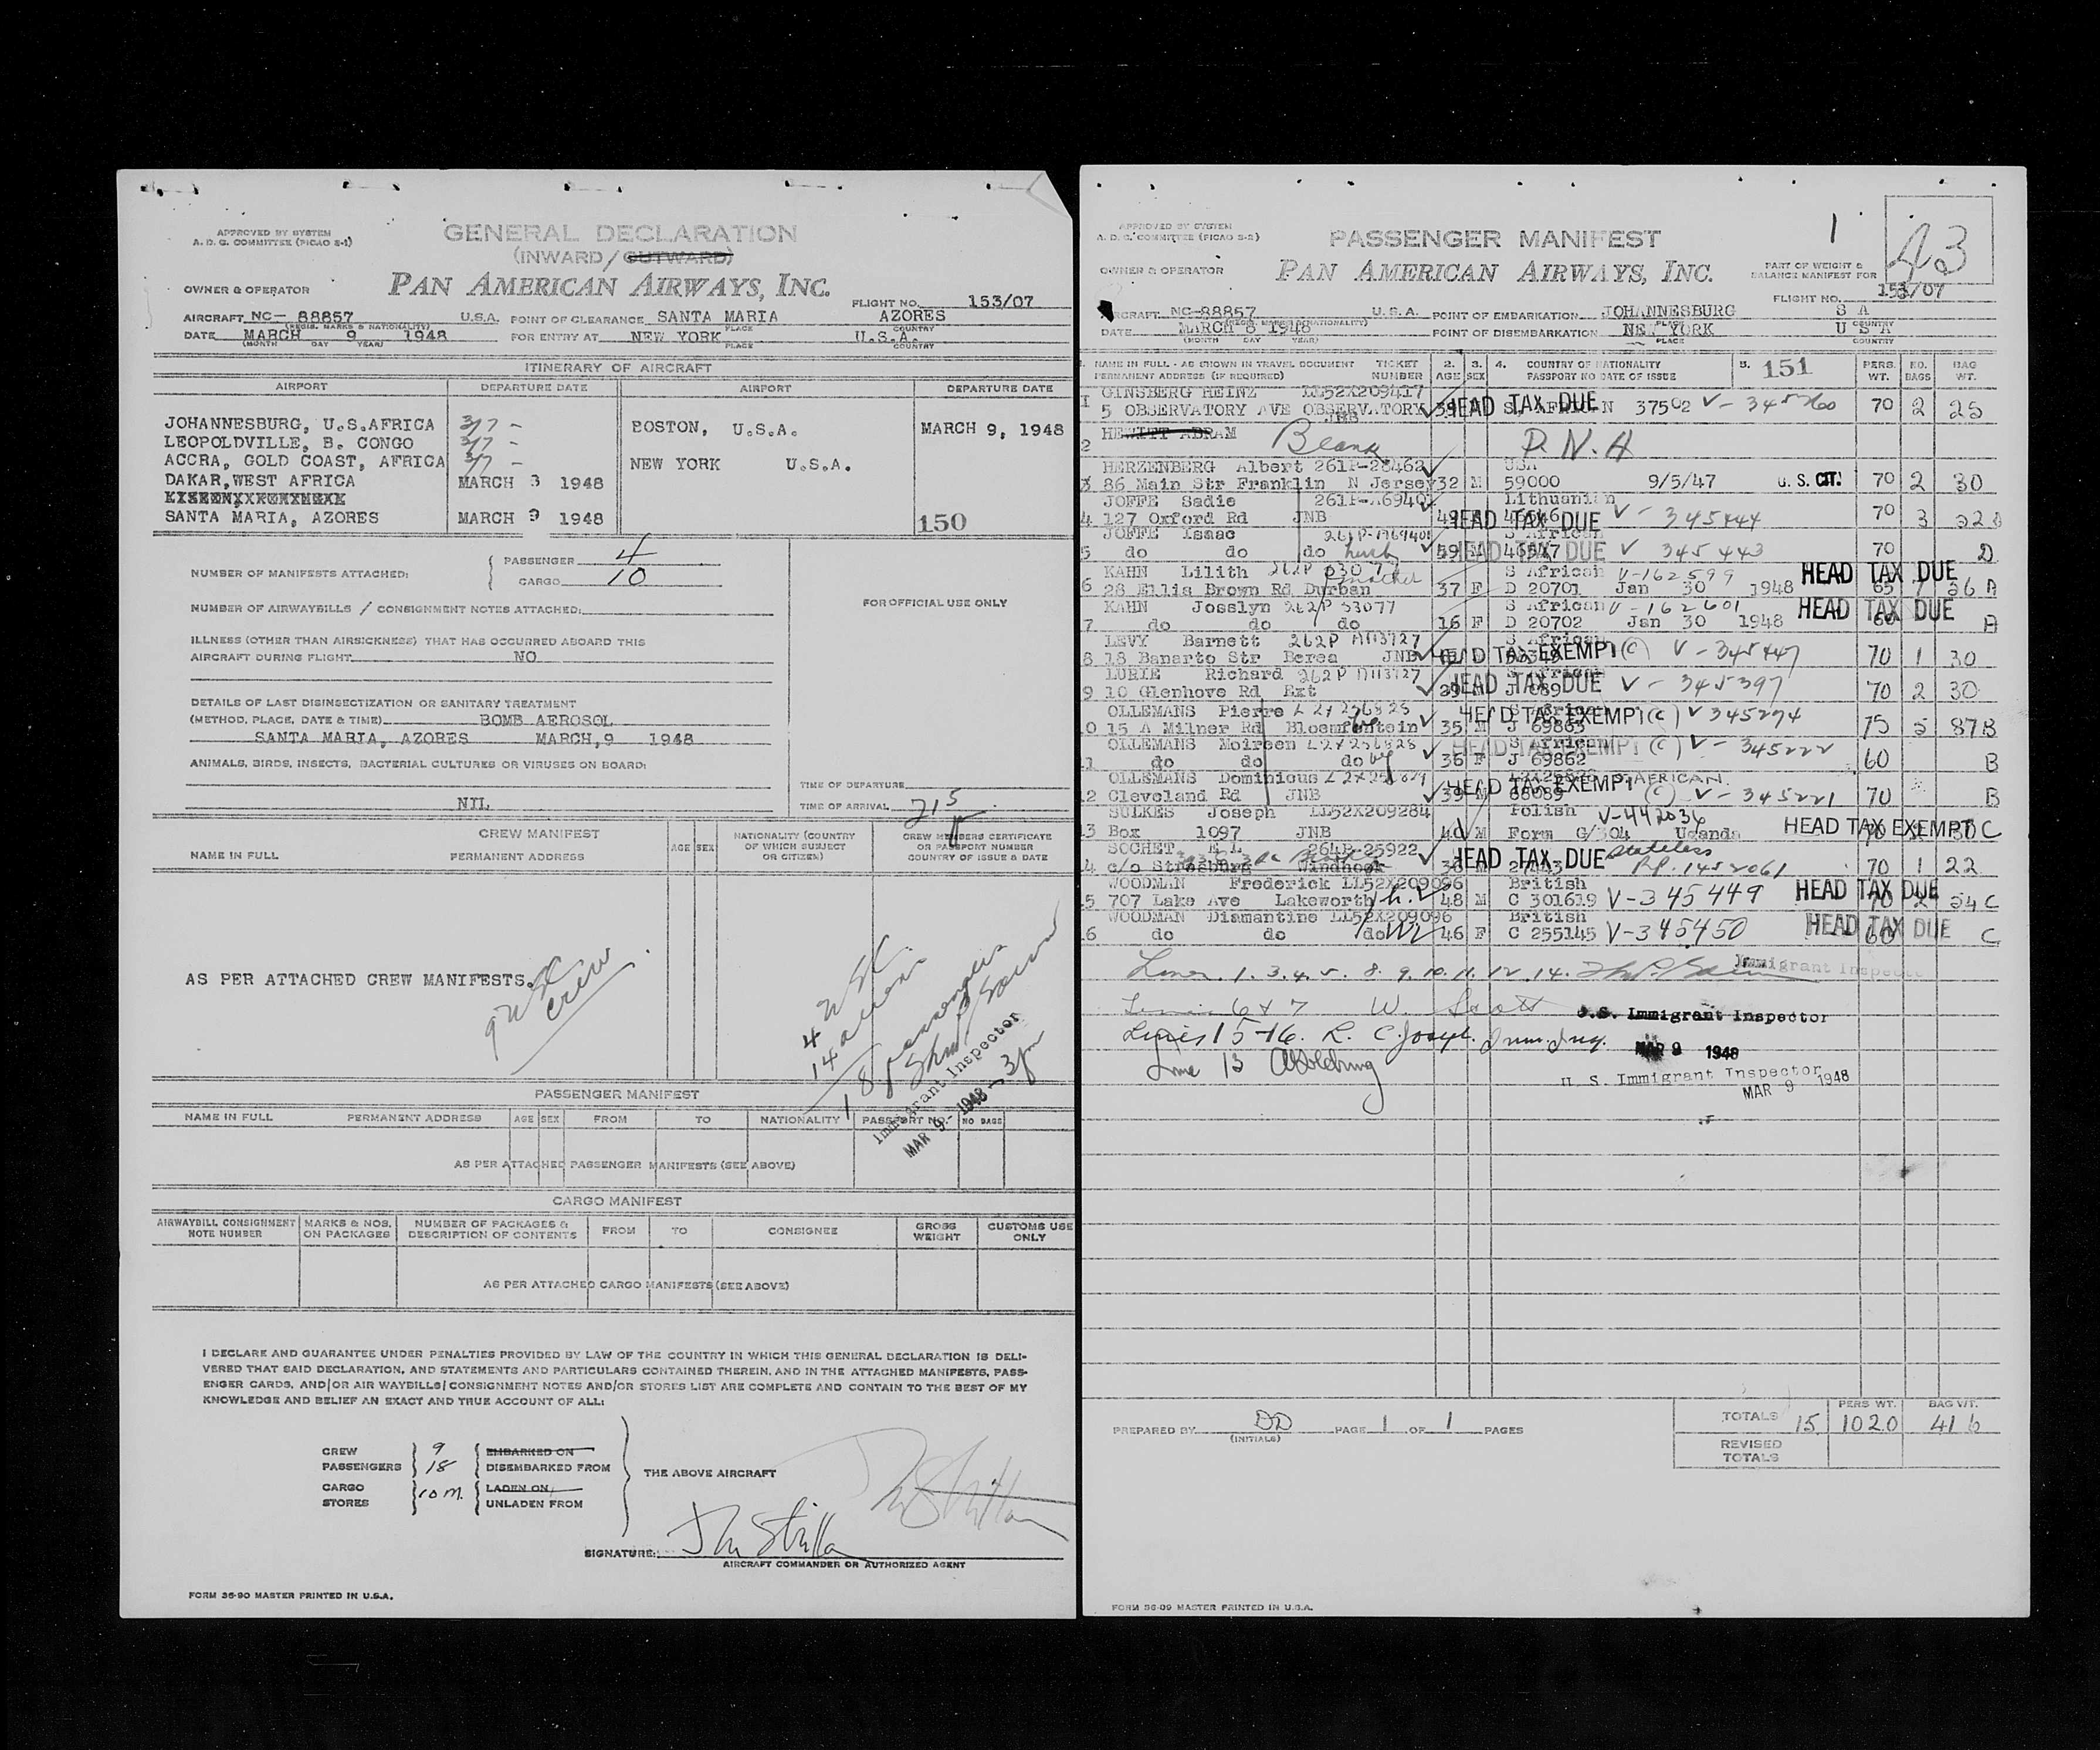 APPROVED BY SYSTEM
A. D. G. COMMITTEE (PICAO S-1)
GENERAL DECLARATION
(INWARD/OUTWARD)
OWNER & OPERATOR
PAN AMERICAN AIRWAYS, INC.
FLIGHT NO. 153/07
AIRCRAFT NC- 88857 U.S.A. POINT OF CLEARANCE SANTA MARIA AZORES
(REGIS. MARKS & NATIONALITY) PLACE COUNTRY
DATE MARCH 9 1948 FOR ENTRY AT NEW YORK U.S.A.
(MONTH DAY YEAR) PLACE COUNTRY
ITINERARY OF AIRCRAFT
AIRPORT DEPARTURE DATE AIRPORT DEPARTURE DATE
JOHANNESBURG, U.S.AFRICA 3/7 - BOSTON, U.S.A. MARCH 9, 1948
LEOPOLDVILLE, B. CONGO 3/7 -
ACCRA, GOLD COAST, AFRICA 3/7 - NEW YORK U.S.A.
DAKAR,WEST AFRICA MARCH 8 1948
SANTA MARIA, AZORES MARCH 9 1948
150
NUMBER OF MANIFESTS ATTACHED: PASSENGER 4
CARGO 10
NUMBER OF AIRWAYBILLS / CONSIGNMENT NOTES ATTACHED:
FOR OFFICIAL USE ONLY
ILLNESS (OTHER THAN AIRSICKNESS) THAT HAS OCCURRED ABOARD THIS
AIRCRAFT DURING FLIGHT NO
DETAILS OF LAST DISINSECTIZATION OR SANITARY TREATMENT
(METHOD, PLACE, DATE & TIME) BOMB AEROSOL
SANTA MARIA, AZORES MARCH,9 1948
ANIMALS, BIRDS, INSECTS, BACTERIAL CULTURES OR VIRUSES ON BOARD:
NIL
TIME OF DEPARTURE
TIME OF ARRIVAL 215 p
CREW MANIFEST
NAME IN FULL PERMANENT ADDRESS AGE SEX NATIONALITY (COUNTRY OF WHICH SUBJECT OR CITIZEN) CREW MEMBERS CERTIFICATE OR PASSPORT NUMBER COUNTRY OF ISSUE & DATE
AS PER ATTACHED CREW MANIFESTS.
9 USC crew
4 USC
14 aliens
18 passengers
Immigrant Inspector
MAR 9 - 1948 - 3pm
PASSENGER MANIFEST
NAME IN FULL PERMANENT ADDRESS AGE SEX FROM TO NATIONALITY PASSPORT NO. NO BAGS
AS PER ATTACHED PASSENGER MANIFESTS (SEE ABOVE)
CARGO MANIFEST
AIRWAYBILL CONSIGNMENT NOTE NUMBER MARKS & NOS. ON PACKAGES NUMBER OF PACKAGES & DESCRIPTION OF CONTENTS FROM TO CONSIGNEE GROSS WEIGHT CUSTOMS USE ONLY
AS PER ATTACHED CARGO MANIFESTS (SEE ABOVE)
I DECLARE AND GUARANTEE UNDER PENALTIES PROVIDED BY LAW OF THE COUNTRY IN WHICH THIS GENERAL DECLARATION IS DELI-
VERED THAT SAID DECLARATION, AND STATEMENTS AND PARTICULARS CONTAINED THEREIN, AND IN THE ATTACHED MANIFESTS, PASS-
ENGER CARDS, AND/OR AIR WAYBILLS/CONSIGNMENT NOTES AND/OR STORES LIST ARE COMPLETE AND CONTAIN TO THE BEST OF MY
KNOWLEDGE AND BELIEF AN EXACT AND TRUE ACCOUNT OF ALL:
CREW 9 EMBARKED ON
PASSENGERS 18 DISEMBARKED FROM
THE ABOVE AIRCRAFT
CARGO 10 M. LADEN ON
STORES UNLADEN FROM
SIGNATURE:
AIRCRAFT COMMANDER OR AUTHORIZED AGENT
FORM 36-90 MASTER PRINTED IN U.S.A.
APPROVED BY SYSTEM
A. D. G. COMMITTEE (PICAO S-2)
PASSENGER MANIFEST
1
43
OWNER & OPERATOR
PAN AMERICAN AIRWAYS, INC.
PART OF WEIGHT &
BALANCE MANIFEST FOR
FLIGHT NO. 153/07
AIRCRAFT NC-88857 U.S.A. POINT OF EMBARKATION JOHANNESBURG S A
DATE MARCH 8 1948 POINT OF DISEMBARKATION NEW YORK U S A
(MONTH DAY YEAR) PLACE COUNTRY
1. NAME IN FULL - AS SHOWN IN TRAVEL DOCUMENT TICKET 2. 3. 4. COUNTRY OF NATIONALITY 5. 151 PERS. NO. BAG
PERMANENT ADDRESS (IF REQUIRED) NUMBER AGE SEX PASSPORT NO DATE OF ISSUE WT. BAGS WT.
GINSBERG HEINZ LL52X209417
1 5 OBSERVATORY AVE OBSERVATORY HEAD TAX DUE 37502 V-345260 70 2 25
JNB
2 HEWITT ABRAM Blank P.N.A
HERZENBERG Albert 261P-28462 USA
3 86 Main Str Franklin N Jersey 32 M 59000 9/5/47 U. S. CIT. 70 2 30
JOFFE Sadie 261P-A69401 Lithuanian
4 127 Oxford Rd JNB 49 HEAD TAX DUE V - 345444 70 3
JOFFE Isaac 261P-A69401 S African
5 do do do 59 HEAD TAX DUE V 345443 70 D
KAHN Lilith S African V-162599 HEAD TAX DUE
6 28 Ellis Brown Rd Durban 37 F D 20701 Jan 30 1948 65 1 26 A
KAHN Josslyn 262P 53077 S African V-162601 HEAD TAX DUE
7 do do do 16 F D 20702 Jan 30 1948 60 A
LEVY Barnett 262P S African
8 18 Banarto Str Berea JNB HEAD TAX EXEMPT (C) V - 345447 70 1 30
LURIE Richard 262P S African
9 10 Glenhove Rd Ext 29 HEAD TAX DUE V - 345397 70 2 30
OLLEMANS Pierre S African
10 15 A Milner Rd Bloemfontein 35 M HEAD TAX EXEMPT (C) V 345274 J 69863 75 5 87B
OLLEMANS Moireen S African
11 do do do 36 F HEAD TAX EXEMPT (C) V - 345222 J 69862 60 B
OLLEMANS Dominicus S.AFRICAN
12 Cleveland Rd JNB 39 M HEAD TAX EXEMPT (C) V - 345221 70 B
SULKES Joseph LL52X209284 Polish V-442034
13 Box 1097 JNB 40 M Form G/304 Uganda HEAD TAX EXEMPT 70 30 C
SOCHET E L 264P-25922 Stateless
14 c/o Strasburg Windhoek HEAD TAX DUE R.P. 1452061 70 1 22
WOODMAN Frederick LL52X209096 British
15 707 Lake Ave Lakeworth 48 M C 301619 V-345449 HEAD TAX DUE 70 2 24 C
WOODMAN Diamantine LL52X209096 British
16 do do do 46 F C 255145 V-345450 HEAD TAX DUE 60 C
Lines. 1. 3. 4. 5. 8. 9. 10. 11. 12. 14. Immigrant Inspector
Lines 6 & 7 W. Scott U.S. Immigrant Inspector
Lines 15-16. R. C. Joseph. Imm. Insp. MAR 9 1948
Line 13
U. S. Immigrant Inspector
MAR 9 1948
PREPARED BY DD PAGE 1 OF 1 PAGES
(INITIALS)
PERS WT. BAG WT.
TOTALS 15 1020 416
REVISED
TOTALS
FORM 36-09 MASTER PRINTED IN U.S.A.